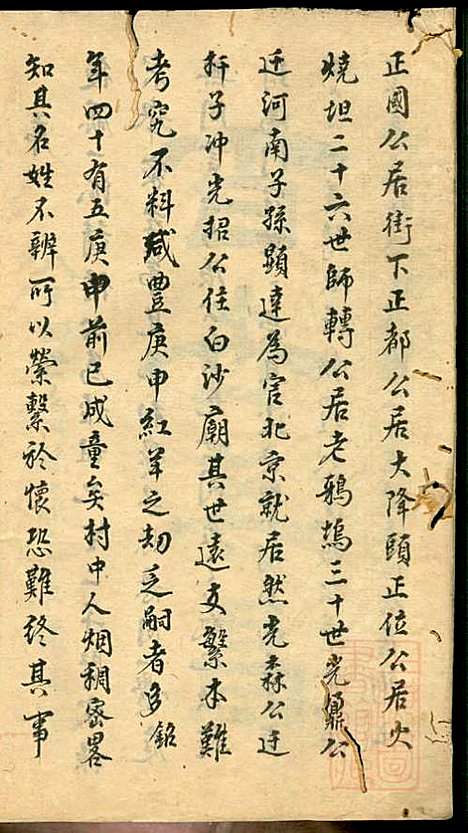 正國公居街下正都公居大降頭正位公居火
燒坦二十六世師轉公居老鴉塢三十世光鼐公
迁河南子孫顕達為官北京就居然光森公迁
扞子冲光招公住白沙廟其世遠支繁本難
考究不料咸豐庚申紅羊之刧乏嗣者多銘
年四十有五庚申前已成童矣村中人烟稠宻畧
知其名姓不辨所以縈繫於懷恐難終其事